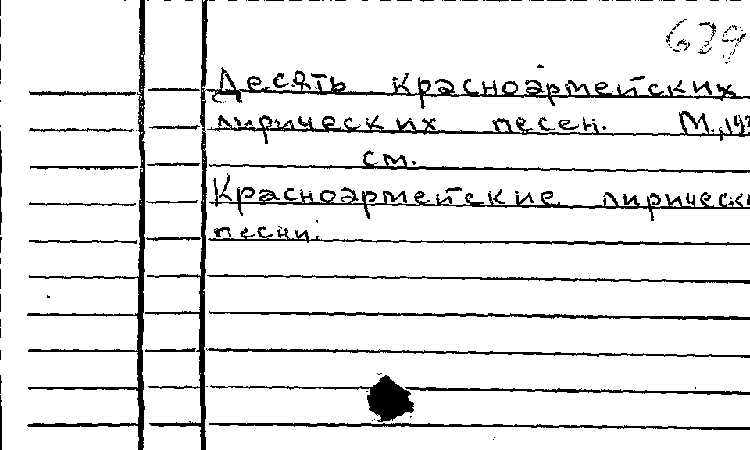 629
Десять красноармейских
лирических песен. М.,193
см.
Красноармейские лирически
песни.